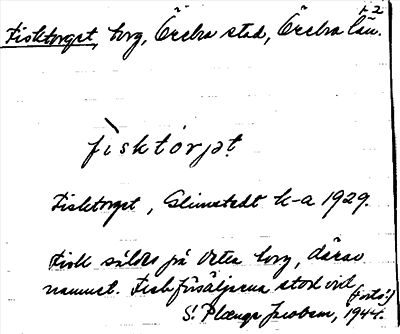 1-2
Fisktorget, torg, Örebro stad, Örebro län.
fìsktórjet
Fisktorget, Glimstedt k-a 1929.
Fisk såldes på detta torg, därav
namnet. Fiskförsäljarna stod vid
(forts!)
S. 1944.